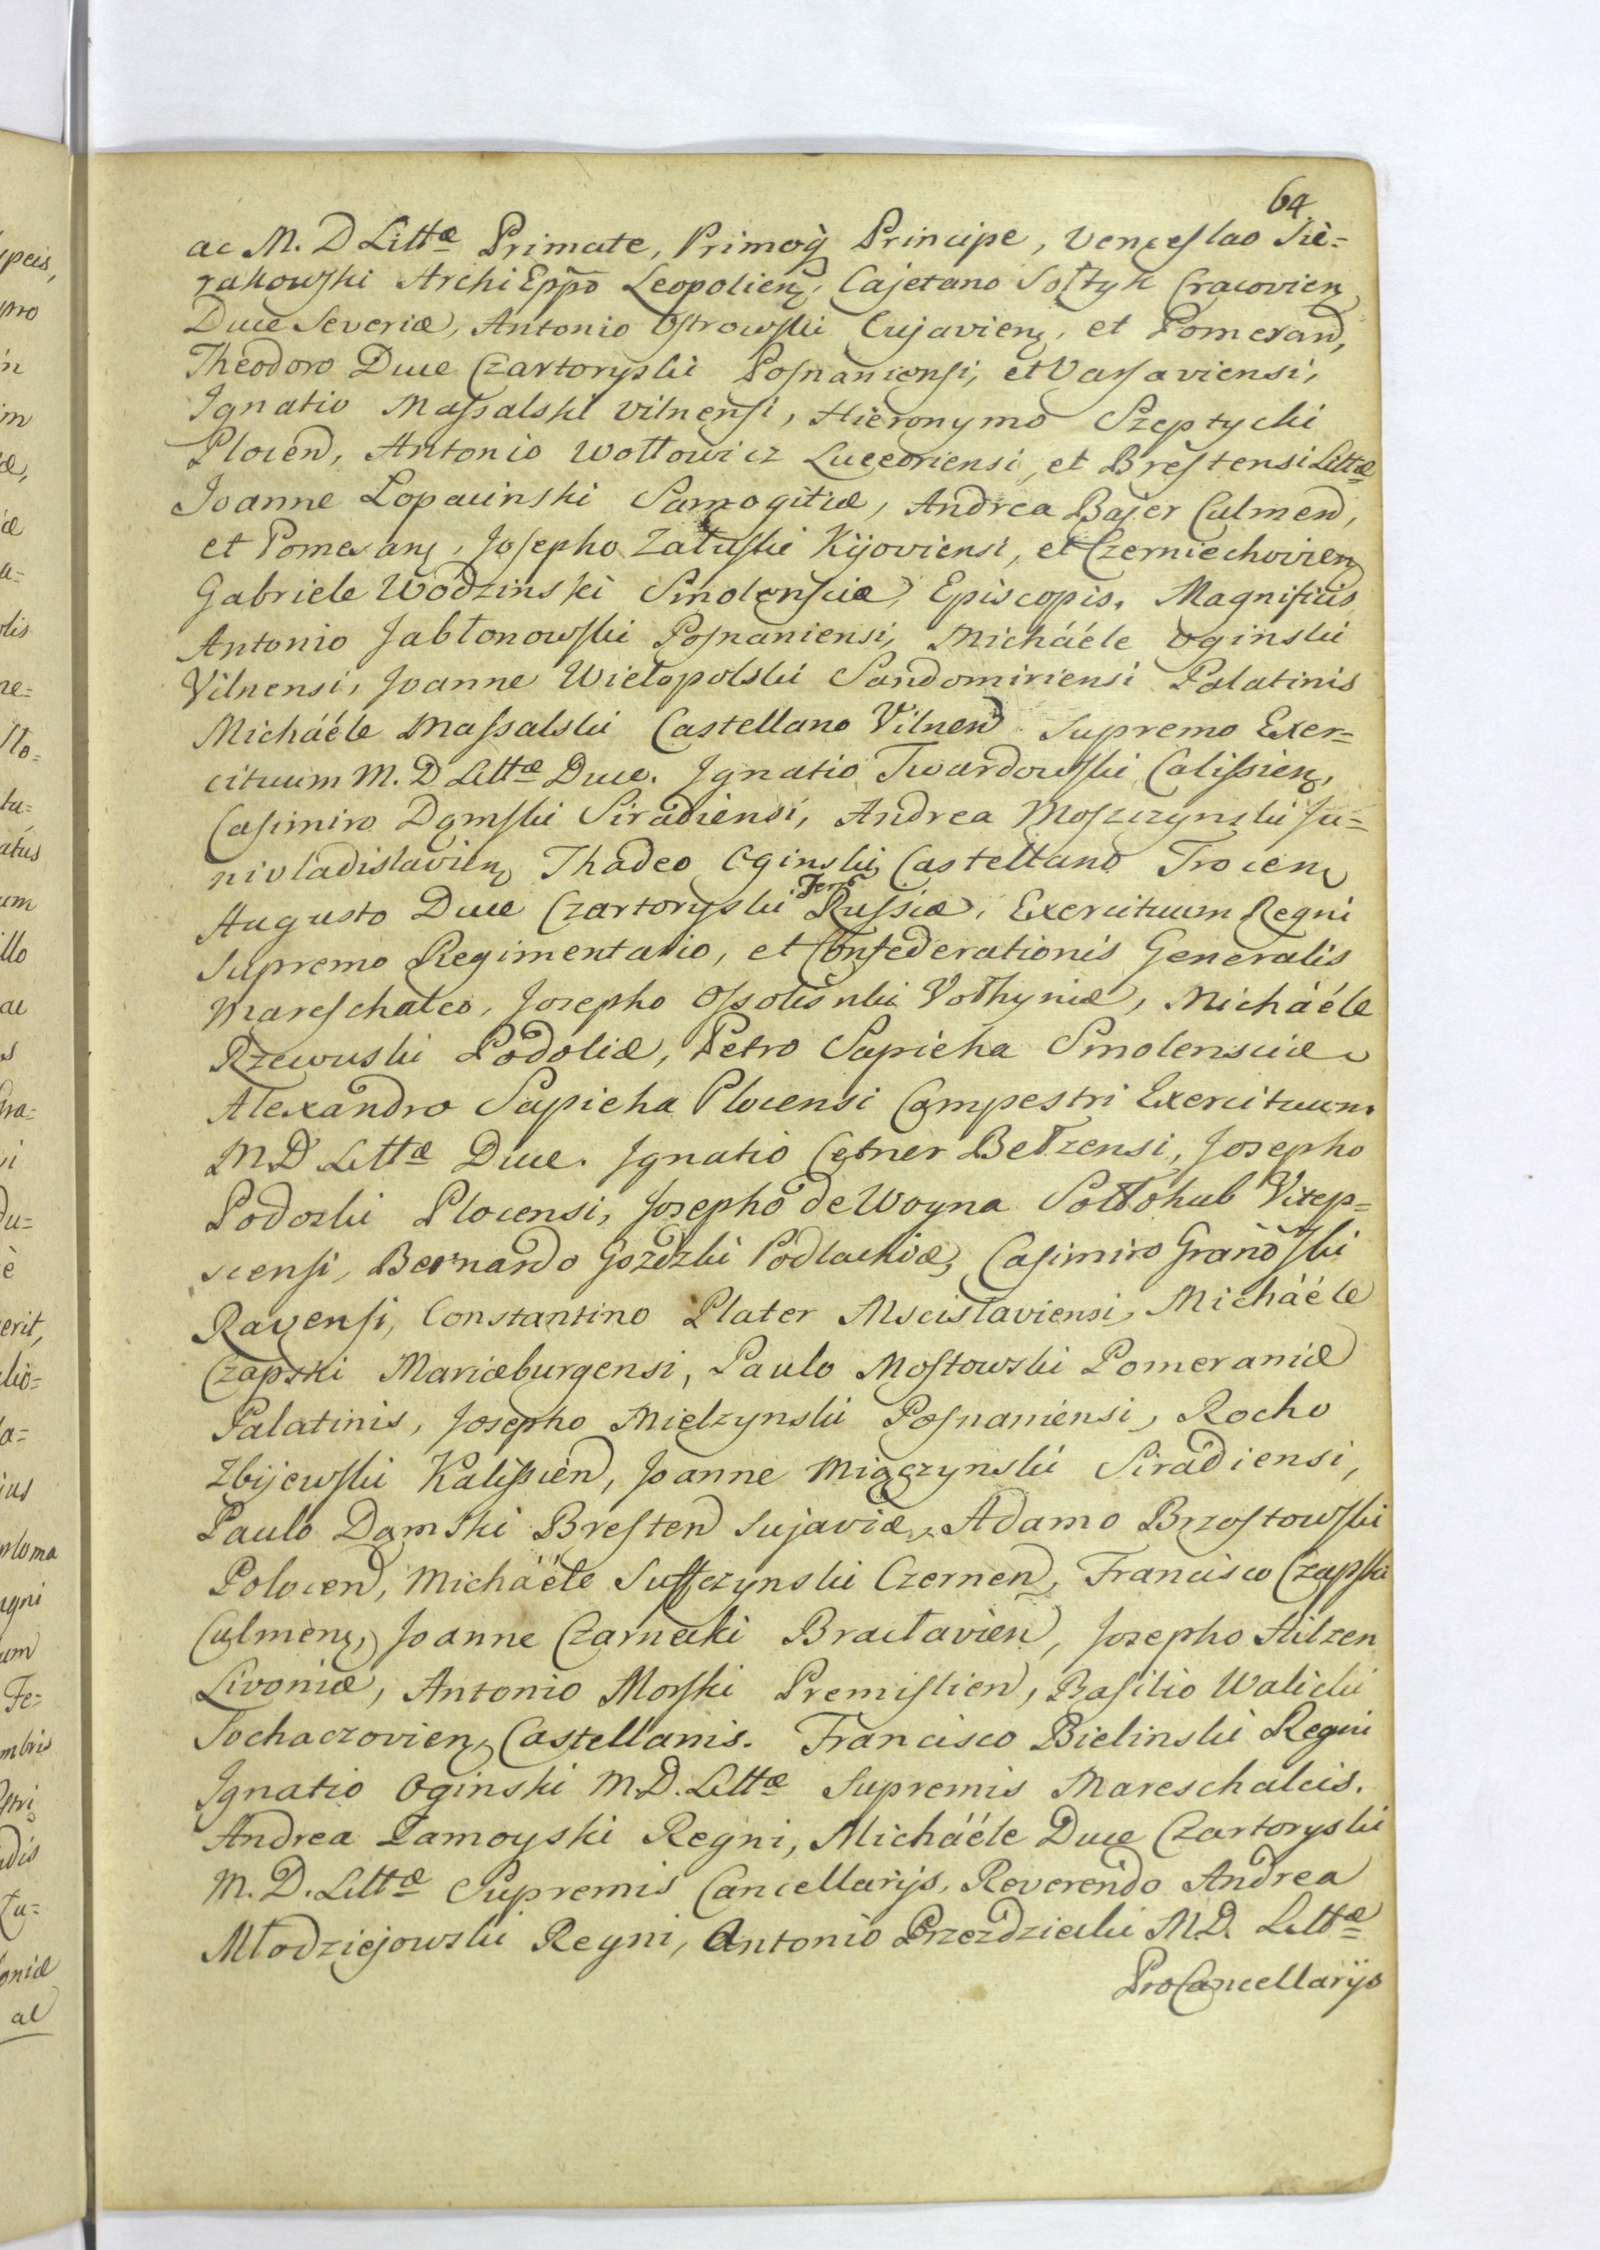 64
ac M. D Littæ Primate, Primoq̀ Principe, Venceslao Sie=
rakowski Archi Eppo Leopolien, Cajetano Sołtyk Cracovien
Duce Severiæ, Antonio Ostrowski Cujavien, et Pomeran,
Theodoro Duce Czartoryski Posnaniensi, et Varsaviensi,
Ignatio Massalski Vilnensi, Hieronymo Szeptycki
Plocen, Antonio Wołłowicz Luceoriensi, et Brestensi Littæ
Joanne Łopacinski Samogitiæ, Andrea Bajer Culmen,
et Pomesan, Josepho Załuski Kijoviensi, et Czerniechovien
Gabriele Wodzinski Smolensciæ, Episcopis, Magnificis
Antonio Jabłonowski Posnaniensi, Micháéle Oginski
Vilnensi, Joanne Wielopolski Sandomiriensi Palatinis
Micháéle Massalski Castellano Vilnen Supremo Exer=
cituum M. D Littæ Duce. Ignatio Twardowski Calissien,
Casimiro Dąmski Siradiensi, Andrea Moszczynski Ju=
nivladislavien, Thadeo Oginski, Castellano Trocen,
Augusto Duce Czartoryski Terr Russiæ, Exercituum Regni
Supremo Regimentario, et Confederationis Generalis
Mareschalco, Josepho Ossolinski Vołhyniæ, Micháéle
Rzewuski Podoliæ, Petro Sapieha Smolensciæ,
Alexandro Sapieha Plocensi Campestri Exercituum
M D Littæ Duce. Ignatio Cetner Bełzensi, Josepho
Podoski Plocensi, Josepho de Woyna Sołłohub Vitep=
scensi, Bernardo Gozdzki Podlachiæ, Casimiro Granowski
Ravensi, Constantino Plater Mscislaviensi, Micháéle
Czapski Mariæburgensi, Paulo Mostowski Pomeraniæ
Palatinis, Josepho Mielzynski Posnaniensi, Rocho
Zbijewski Kalissien, Joanne Miączynski Siradiensi,
Paulo Dąmski Bresten Cujaviæ, Adamo Brzostowski
Polocen, Micháéle Suffczynski Czernen, Francisco Czapski
Culmen, Joanne Czarnecki Bracłavien, Josepho Hilzen
Livoniæ, Antonio Morski Premislien, Basilio Walicki
Sochaczovien, Castellanis. Francisco Bielinski Regni
Ignatio Oginski M D. Littæ Supremis Mareschalcis.
Andrea Zamoyski Regni, Micháéle Duce Czartoryski
M. D. Littæ Supremis Cancellarijs, Reverendo Andrea
Młodziejowski Regni, Antonio Przezdziecki M D. Littæ
ProCancellarijs